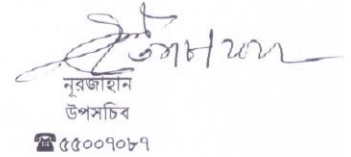 নূরজাহান
উপসচিব
☎৫৫০০৭০৮৭